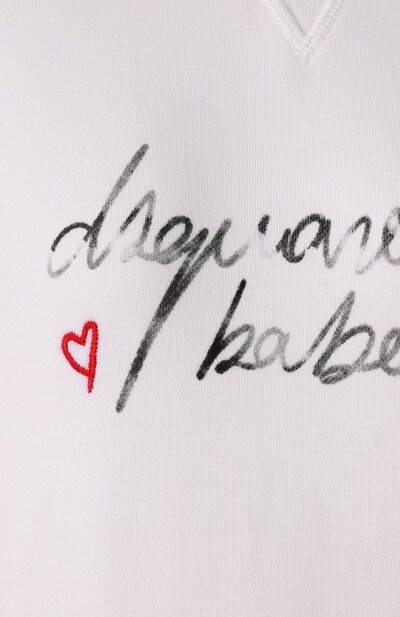 dsquare
babe